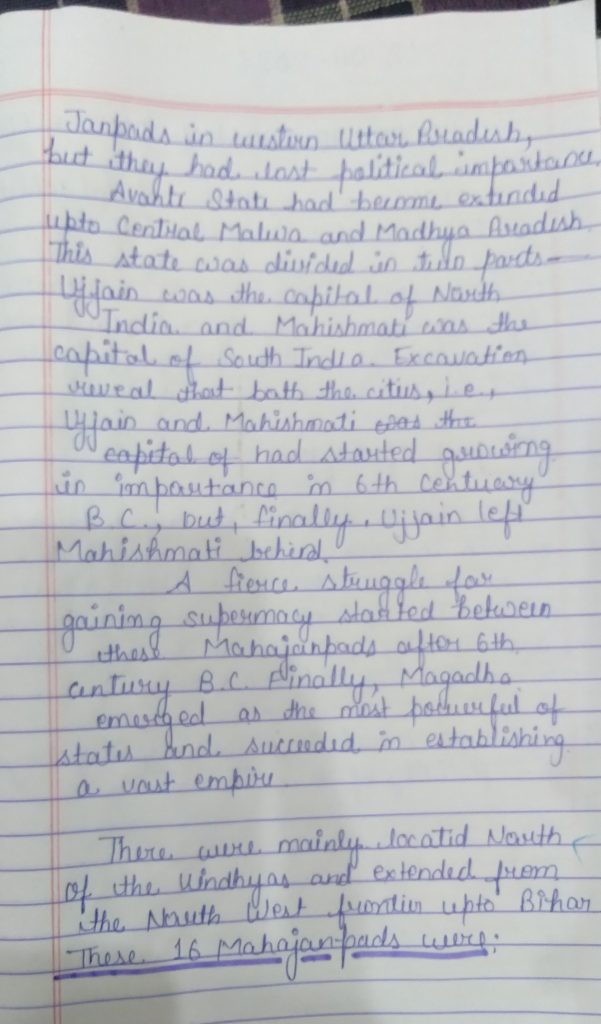 Janpads in western Uttar Pradesh,
but they had lost political importance.
Avanti State had become extended
upto Central Malwa and Madhya Pradesh.
This state was divided in two parts—
Ujjain was the capital of North
India and Mahishmati was the
capital of South India. Excavation
reveal that both the cities, i.e.,
Ujjain and Mahishmati was the
capital of had started growing
in importance in 6th centuary
B.C., but, finally, Ujjain left
Mahishmati behind.
A fierce struggle for
gaining supermacy started between
these Mahajanpads after 6th
century B.C. Finally, Magadha
emerged as the most powerful of
states and succeeded in establishing
a vast empire.
There were mainly locatid North
of the Vindhyas and extended from
the North West frontier upto Bihar
These 16 Mahajanpads were: